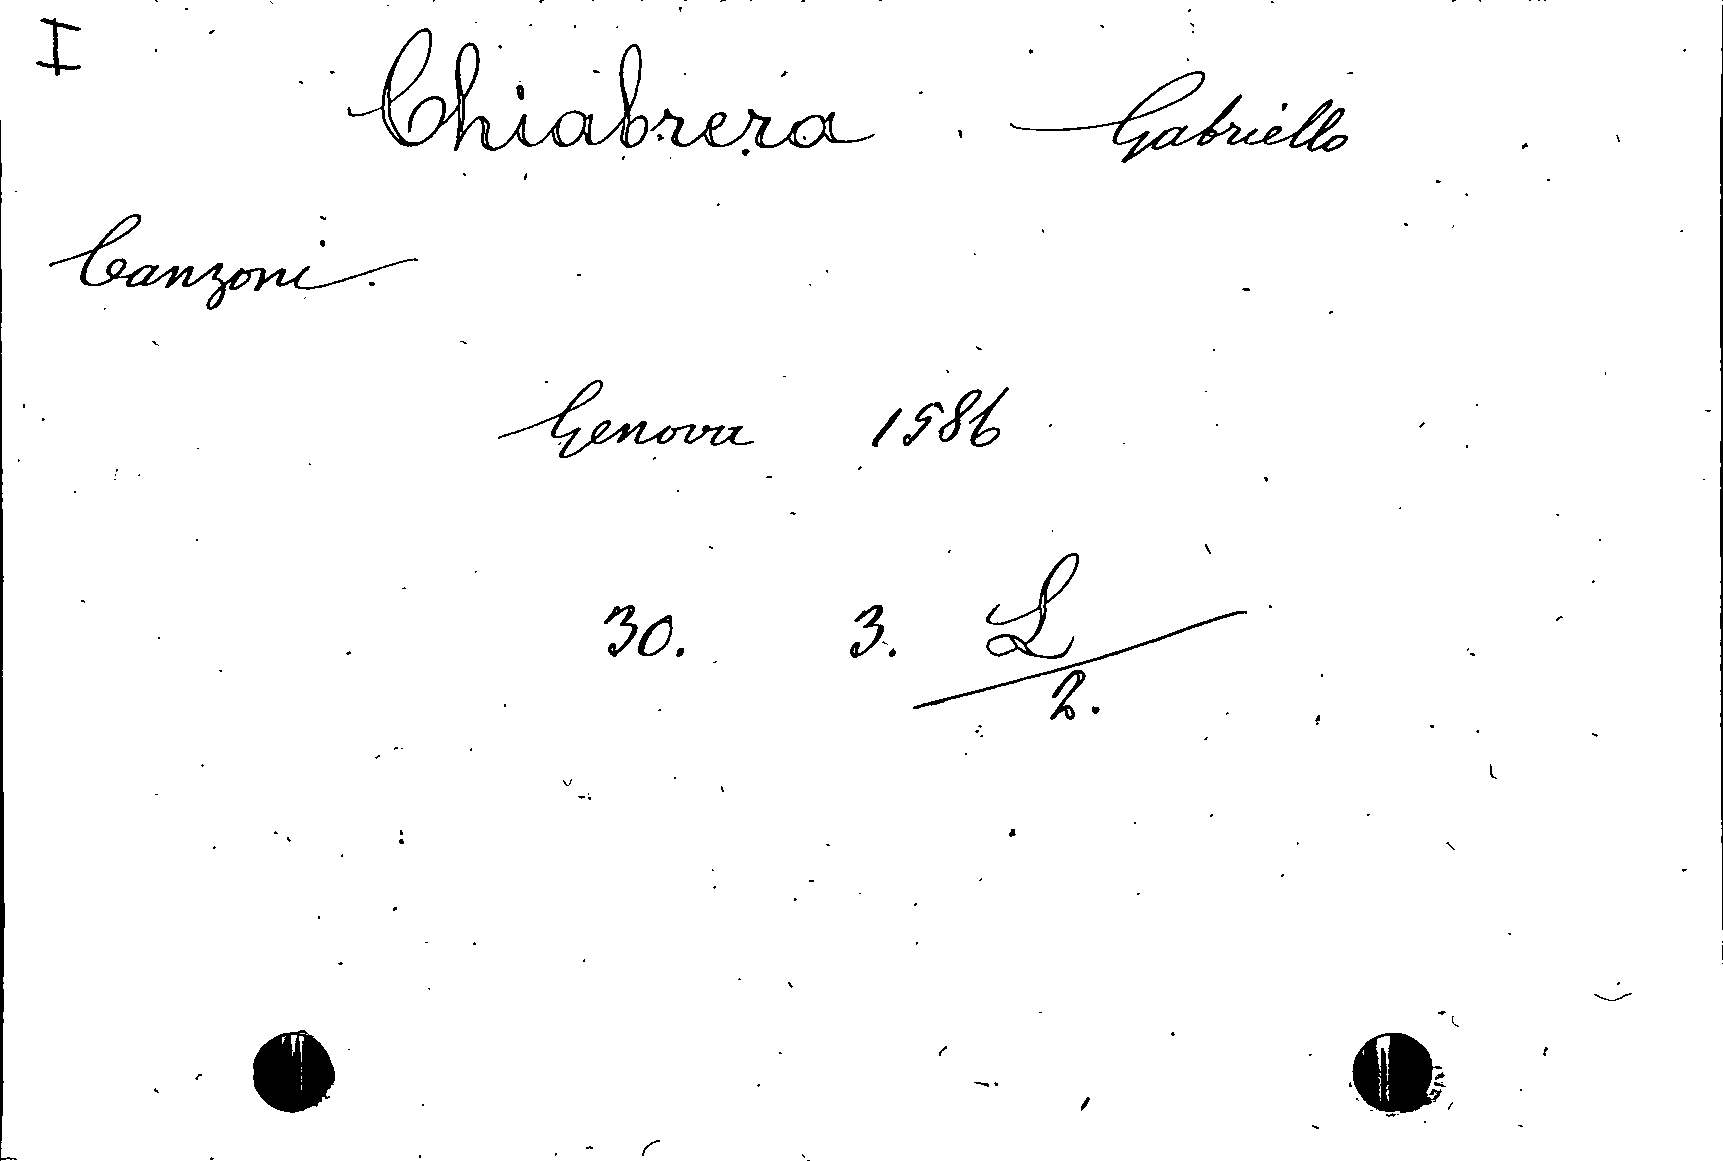 I
Chiabrera Gabriello
Canzoni.
Genova 1586
30. 3. L
2.